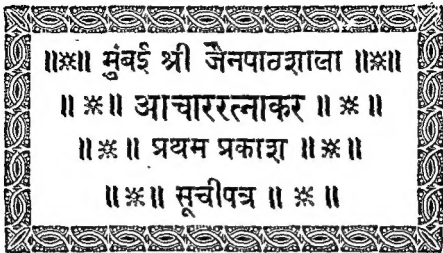 ॥※॥ मुंबई श्री जैनपाठशाला ॥※॥
॥ ※॥ आचाररत्नाकर ॥ ※ ॥
॥※॥ प्रथम प्रकाश ॥※॥
॥※॥ सूचीपत्र ॥ ※ ॥